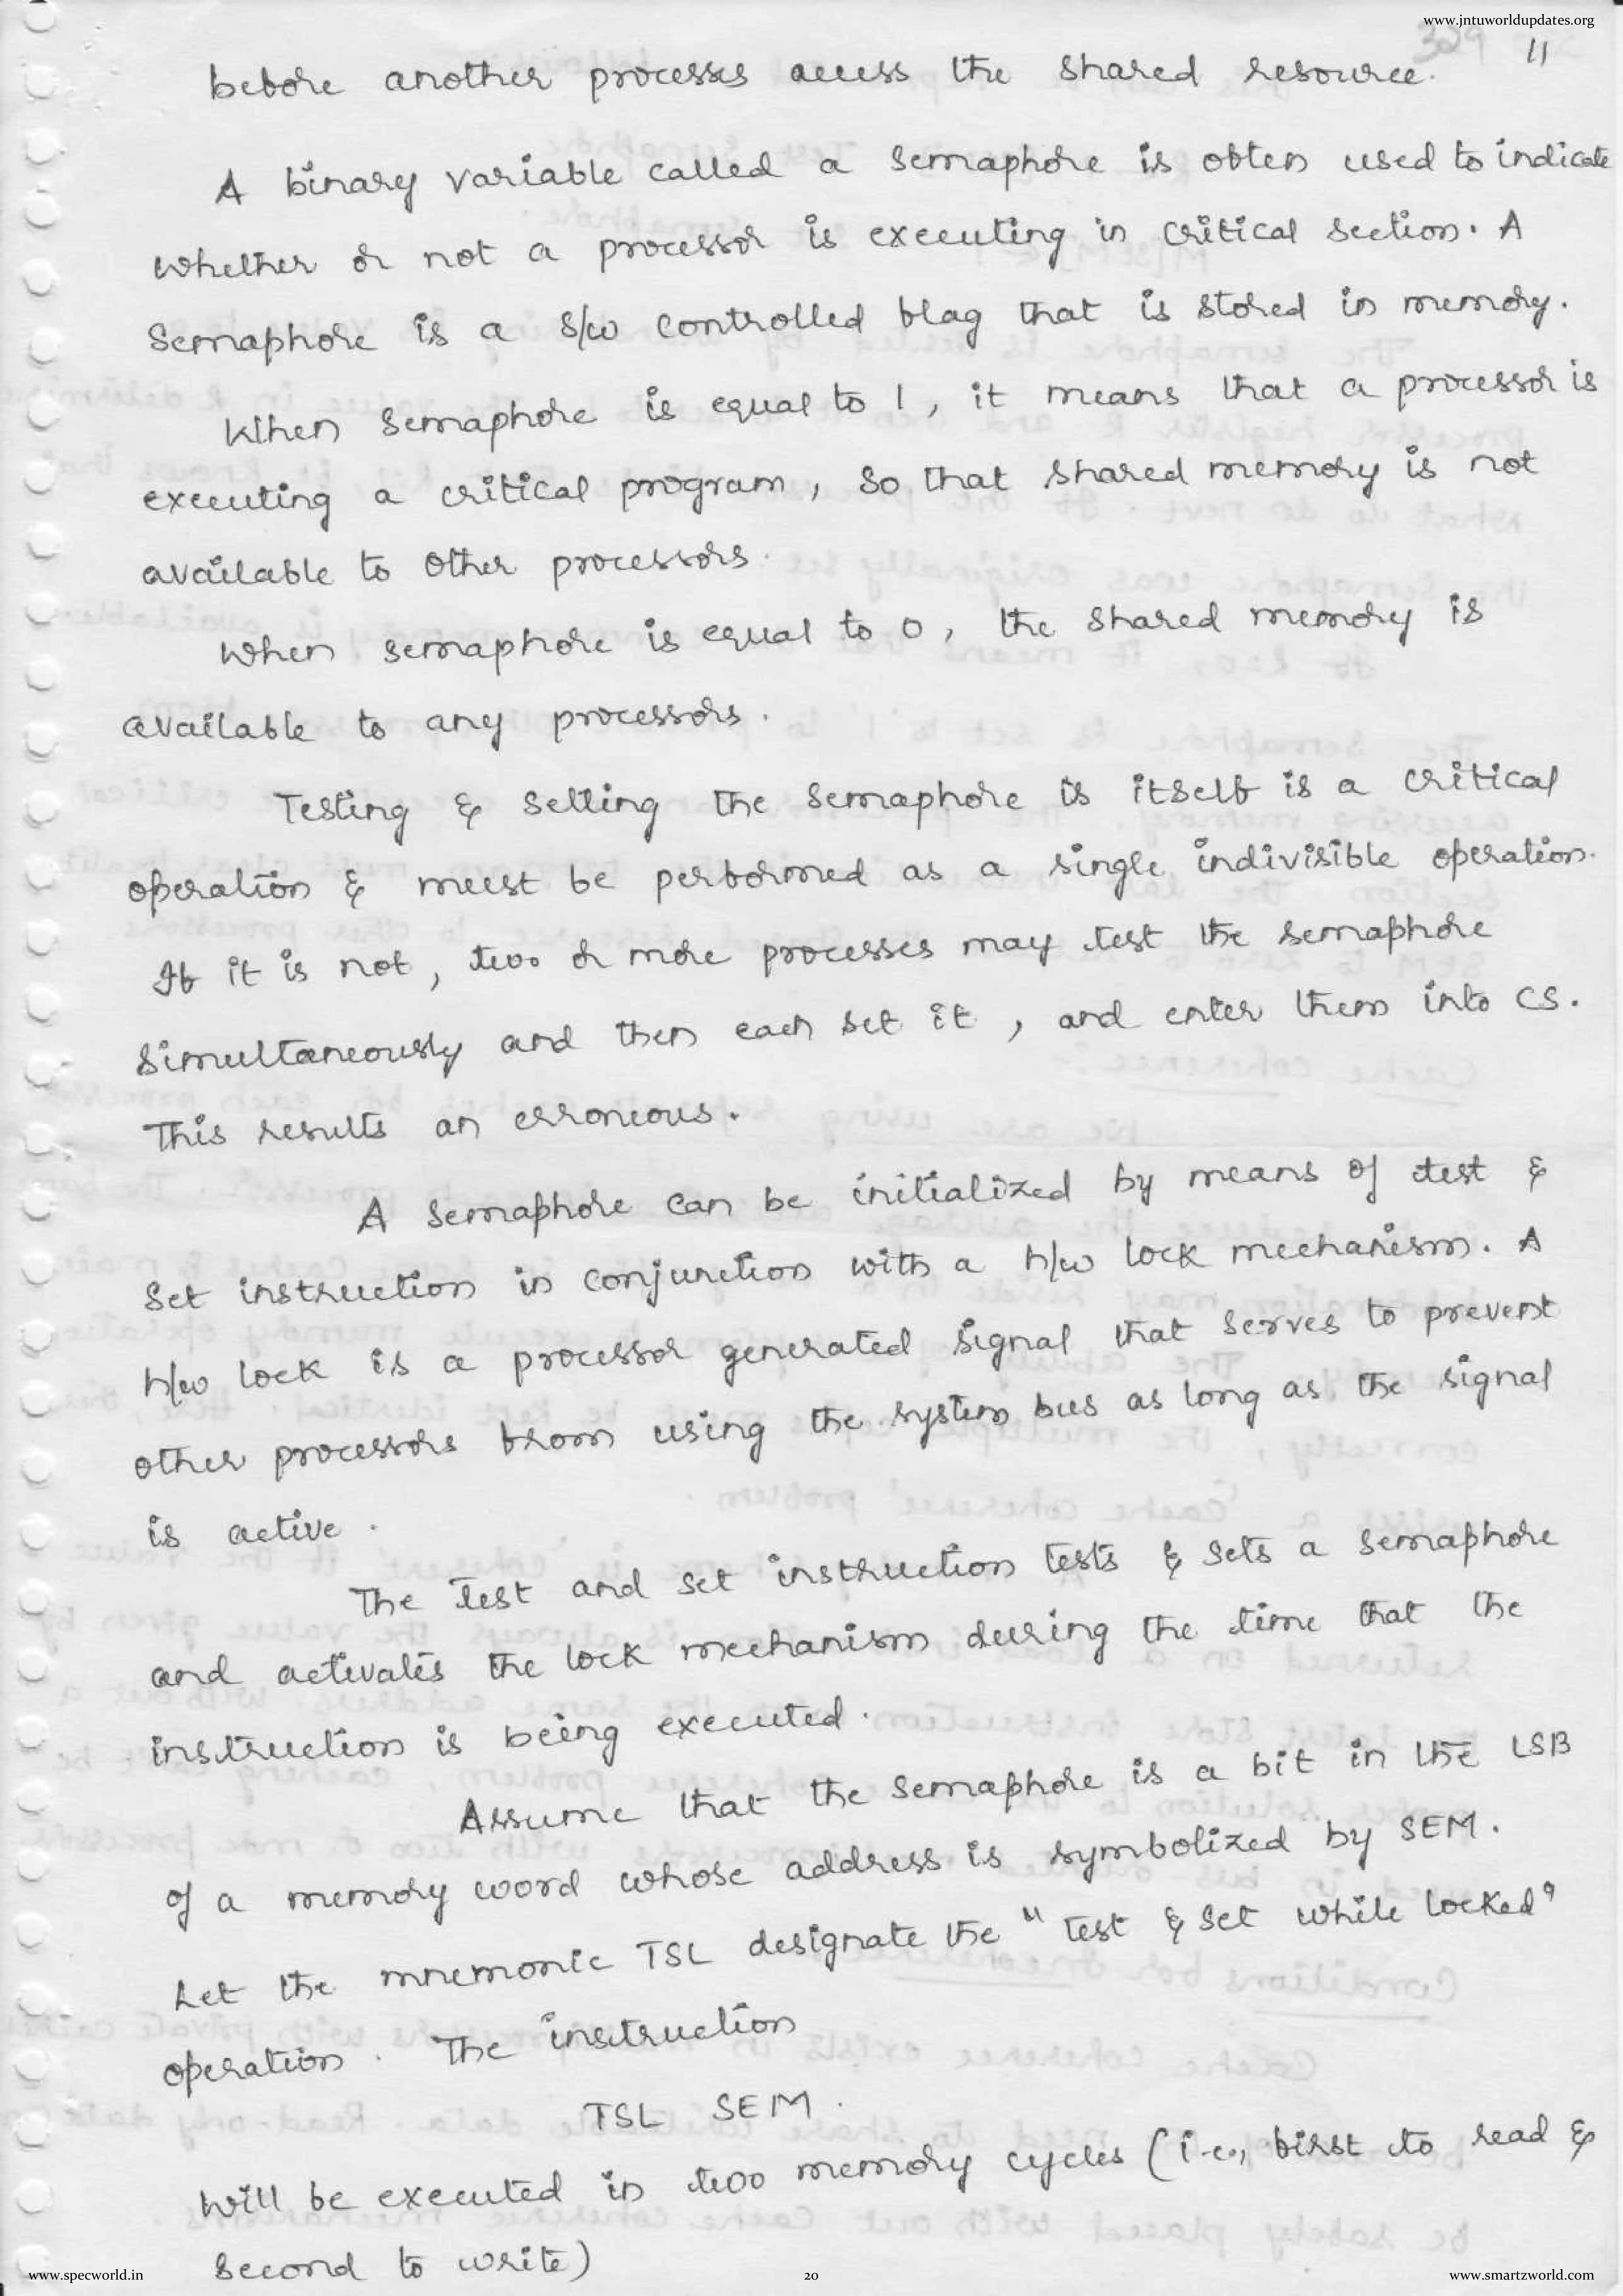 www.jntuworldupdates.org
329 11
before another processes access the shared resource.
A binary variable called a semaphore is often used to indicate
whether or not a processor is executing in critical section. A
Semaphore is a S/w controlled flag that is stored in memory.
When Semaphore is equal to 1, it means that a processor is
executing a critical program, so that shared memory is not
available to other processors.
When semaphore is equal to 0, the shared memory is
available to any processors.
Testing & Setting the semaphore is itself is a critical
operation & must be performed as a single indivisible operation.
If it is not, two or more processes may test the semaphore
simultaneously and then each set it, and enter them into CS.
This results an erroneous.
A semaphore can be initialized by means of test &
set instruction in conjunction with a h/w lock mechanism. A
h/w lock is a processor generated signal that serves to prevent
other processors from using the system bus as long as the signal
is active.
The test and set instruction tests & sets a semaphore
and activates the lock mechanism during the time that the
instruction is being executed.
Assume that the semaphore is a bit in the LSB
of a memory word whose address is symbolized by SEM.
Let the mnemonic TSL designate the "test & set while locked"
operation. The instruction
TSL SEM.
will be executed in two memory cycles (i.e., first to read &
second to write)
www.specworld.in 20 www.smartzworld.com